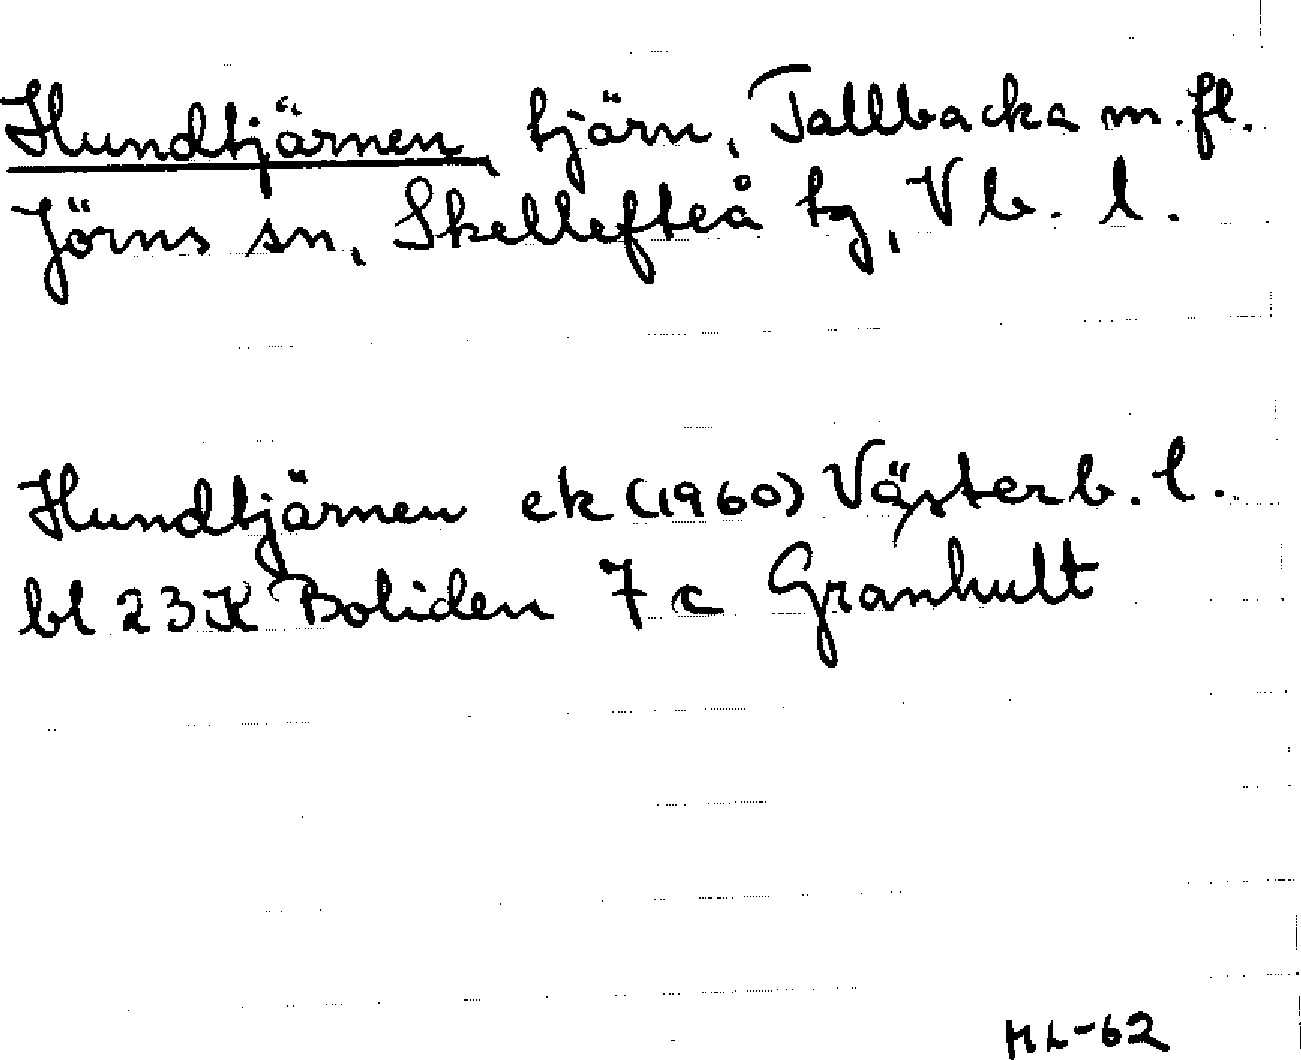 Hundtjärnen, tjärn, Tallbacka m.fl.
Jörns sn, Skellefteå tg, Vb. l.
Hundtjärnen ek (1960) Västerb. l.
bl 23K Boliden 7c Granhult
ML-62